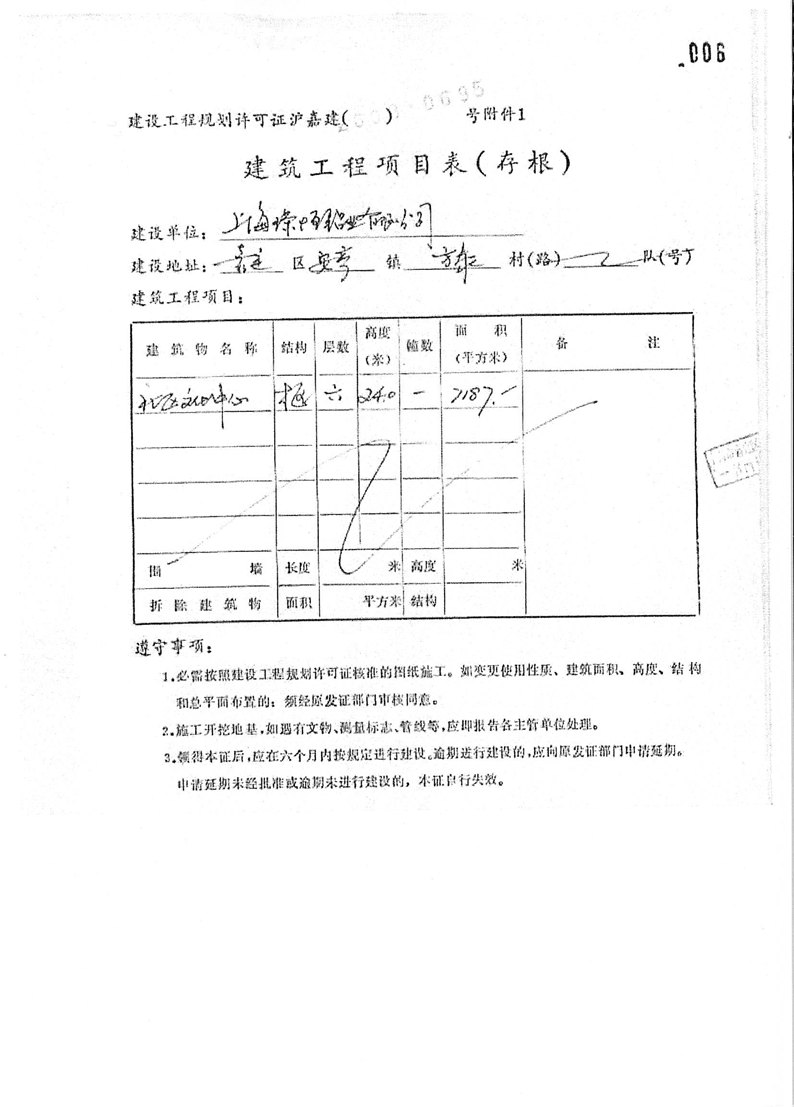 006
2003-0695
建设工程规划许可证沪嘉建( )号附件1
建筑工程项目表(存根)
建设单位: 上海 铝业有限公司
建设地址: 嘉定 区 安亭 镇 方泰 村(路) 队(号)
建筑工程项目:
建筑物名称 结构 层数 高度(米) 幢数 面积(平方米) 备注
社区文化中心 框 六 24.0 一 7187.-
围墙 长度 米 高度 米
拆除建筑物 面积 平方米 结构
遵守事项:
1.必需按照建设工程规划许可证核准的图纸施工。如变更使用性质、建筑面积、高度、结构
和总平面布置的;须经原发证部门审核同意。
2.施工开挖地基,如遇有文物、测量标志、管线等,应即报告各主管单位处理。
3.领得本证后,应在六个月内按规定进行建设。逾期进行建设的,应向原发证部门申请延期。
申请延期未经批准或逾期未进行建设的,本证自行失效。